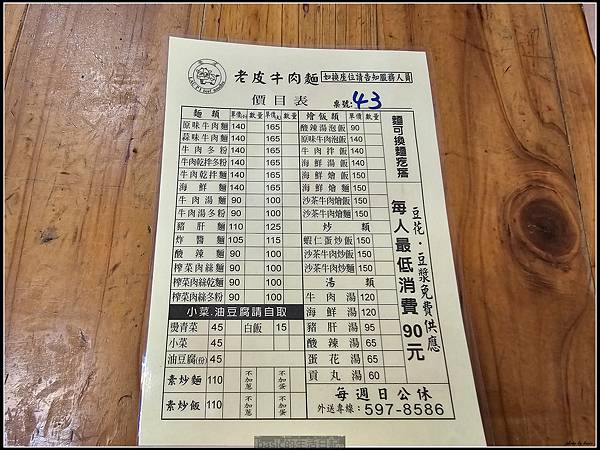 老皮牛肉麵 如換座位請告知服務人員
價目表 桌號: 43
麵類 單價 數量 單價 數量 燴飯類 單價 數量
原味牛肉麵 140 165 酸辣湯泡飯 90
蒜味牛肉麵 140 165 原味牛肉泡飯 140
牛肉冬粉 140 165 牛肉拌飯 140
牛肉乾拌冬粉 140 165 海鮮湯飯 150
牛肉乾拌麵 140 165 海鮮燴飯 150
海鮮麵 140 165 海鮮燴麵 150
牛肉湯麵 90 100 沙茶牛肉燴飯 150
牛肉湯冬粉 90 100 沙茶牛肉燴麵 150
豬肝麵 110 125 炒類
炸醬麵 105 115 蝦仁蛋炒飯 150
酸辣麵 90 100 沙茶牛肉炒飯 150
榨菜肉絲麵 90 100 沙茶牛肉炒麵 150
榨菜肉絲乾麵 90 100 湯類
榨菜肉絲冬粉 90 100 牛肉湯 120
小菜.油豆腐請自取 海鮮湯 120
燙青菜 45 白飯 15 豬肝湯 95
小菜 45 酸辣湯 65
油豆腐(份) 45 蛋花湯 65
素炒麵 110 不加蔥 不加蛋 貢丸湯 60
素炒飯 110 不加蔥 不加蛋
每週日公休
外送專線: 597-8586
麵可換麵疙瘩
每人最低消費90元
豆花·豆漿免費供應